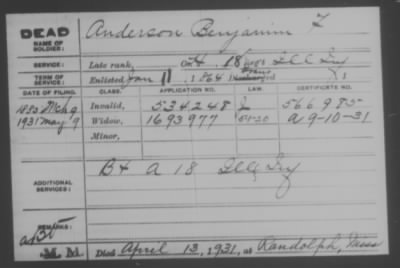 DEAD
NAME OF SOLDIER:
Anderson Benjamin F
SERVICE:
Late rank, Co. H, 18 Reg't Ill Inf
TERM OF SERVICE:
Enlisted Jan 11, 1864 Discharged
DATE OF FILING. CLASS. APPLICATION NO. LAW. CERTIFICATE NO.
1885 Mch 9 Invalid, 534248 566985
1931 May 9 Widow, 1693977 5-1-20 a 9-10-31
Minor,
ADDITIONAL SERVICES:
B & A 18 Ill Inf
REMARKS:
M.M. Died April 13, 1931, at Randolph, Mass